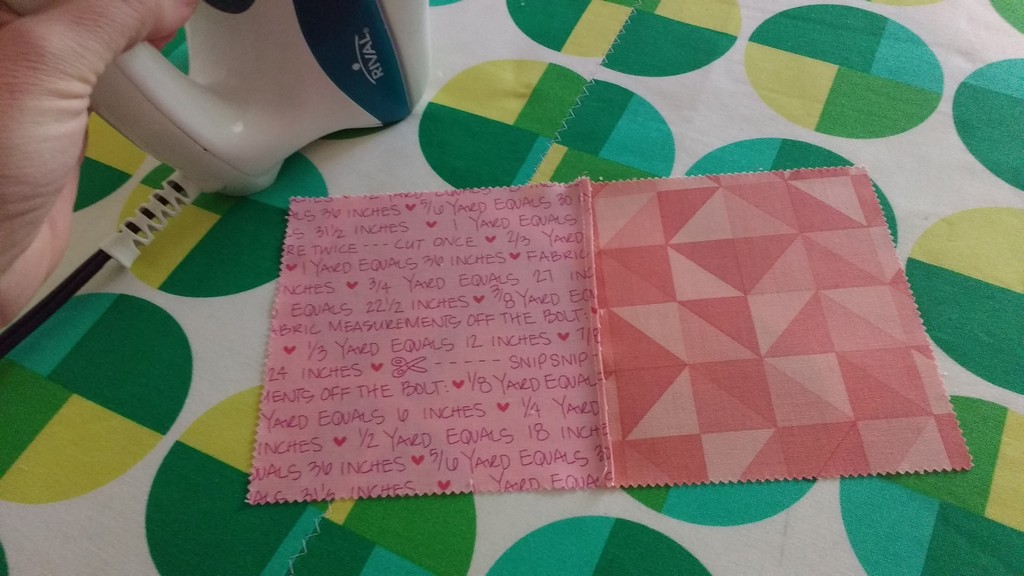 RIVAL
ALS 36 INCHES ♥ 5/6 YARD EQUALS 30
LS 31 1/2 INCHES ♥ 1 YARD EQUALS
RE TWICE --- CUT ONCE ♥ 2/3 YARD
♥ 1 YARD EQUALS 36 INCHES ♥ FABRIC
NCHES ♥ 3/4 YARD EQUALS 27 INC
EQUALS 22 1/2 INCHES ♥ 3/8 YARD EQ
ABRIC MEASUREMENTS OFF THE BOLT:
♥ 1/3 YARD EQUALS 12 INCHES ♥ 7/8
24 INCHES ♥ ---- SNIPSNIP
MENTS OFF THE BOLT: ♥ 1/8 YARD EQUAL
YARD EQUALS 6 INCHES ♥ 1/4 YARD
INCHES ♥ 1/2 YARD EQUALS 18 INCH
QUALS 36 INCHES ♥ 5/6 YARD EQUALS 3
ALS 31 1/2 INCHES ♥ YARD EQUALS